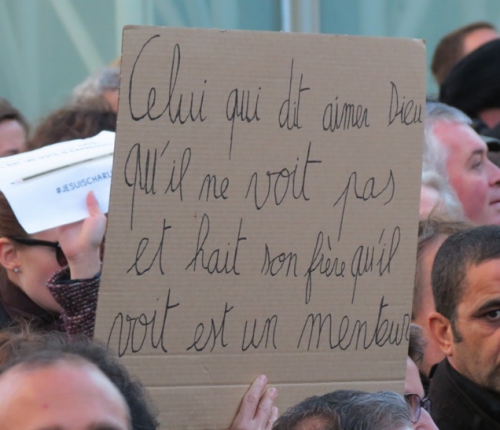 Celui qui dit aimer Dieu
qu'il ne voit pas
et hait son frère qu'il
voit est un menteur
#JESUISCHARL